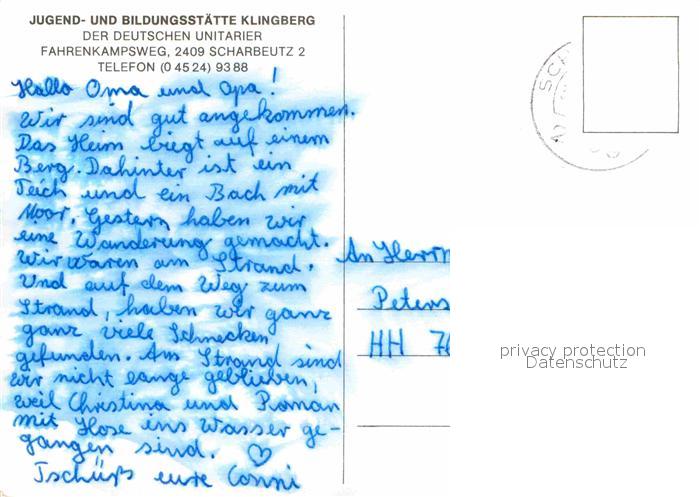 JUGEND- UND BILDUNGSSTÄTTE KLINGBERG
DER DEUTSCHEN UNITARIER
FAHRENKAMPSWEG, 2409 SCHARBEUTZ 2
TELEFON (0 45 24) 93 88
Hallo Oma und Opa!
Wir sind gut angekommen.
Das Heim liegt auf einem
Berg. Dahinter ist ein
Teich und ein Bach mit
Moor. Gestern haben wir
eine Wanderung gemacht.
Wir waren am Strand.
Und auf dem Weg zum
Strand, haben wir ganz
ganz viele Schnecken
gefunden. Am Strand sind
wir nicht lange geblieben,
weil Christina und Roman
mit Hose ins Wasser ge-
gangen sind. ♡
Tschüß eure Conni
An Herrn
Peters
HH 76
privacy protection
Datenschutz